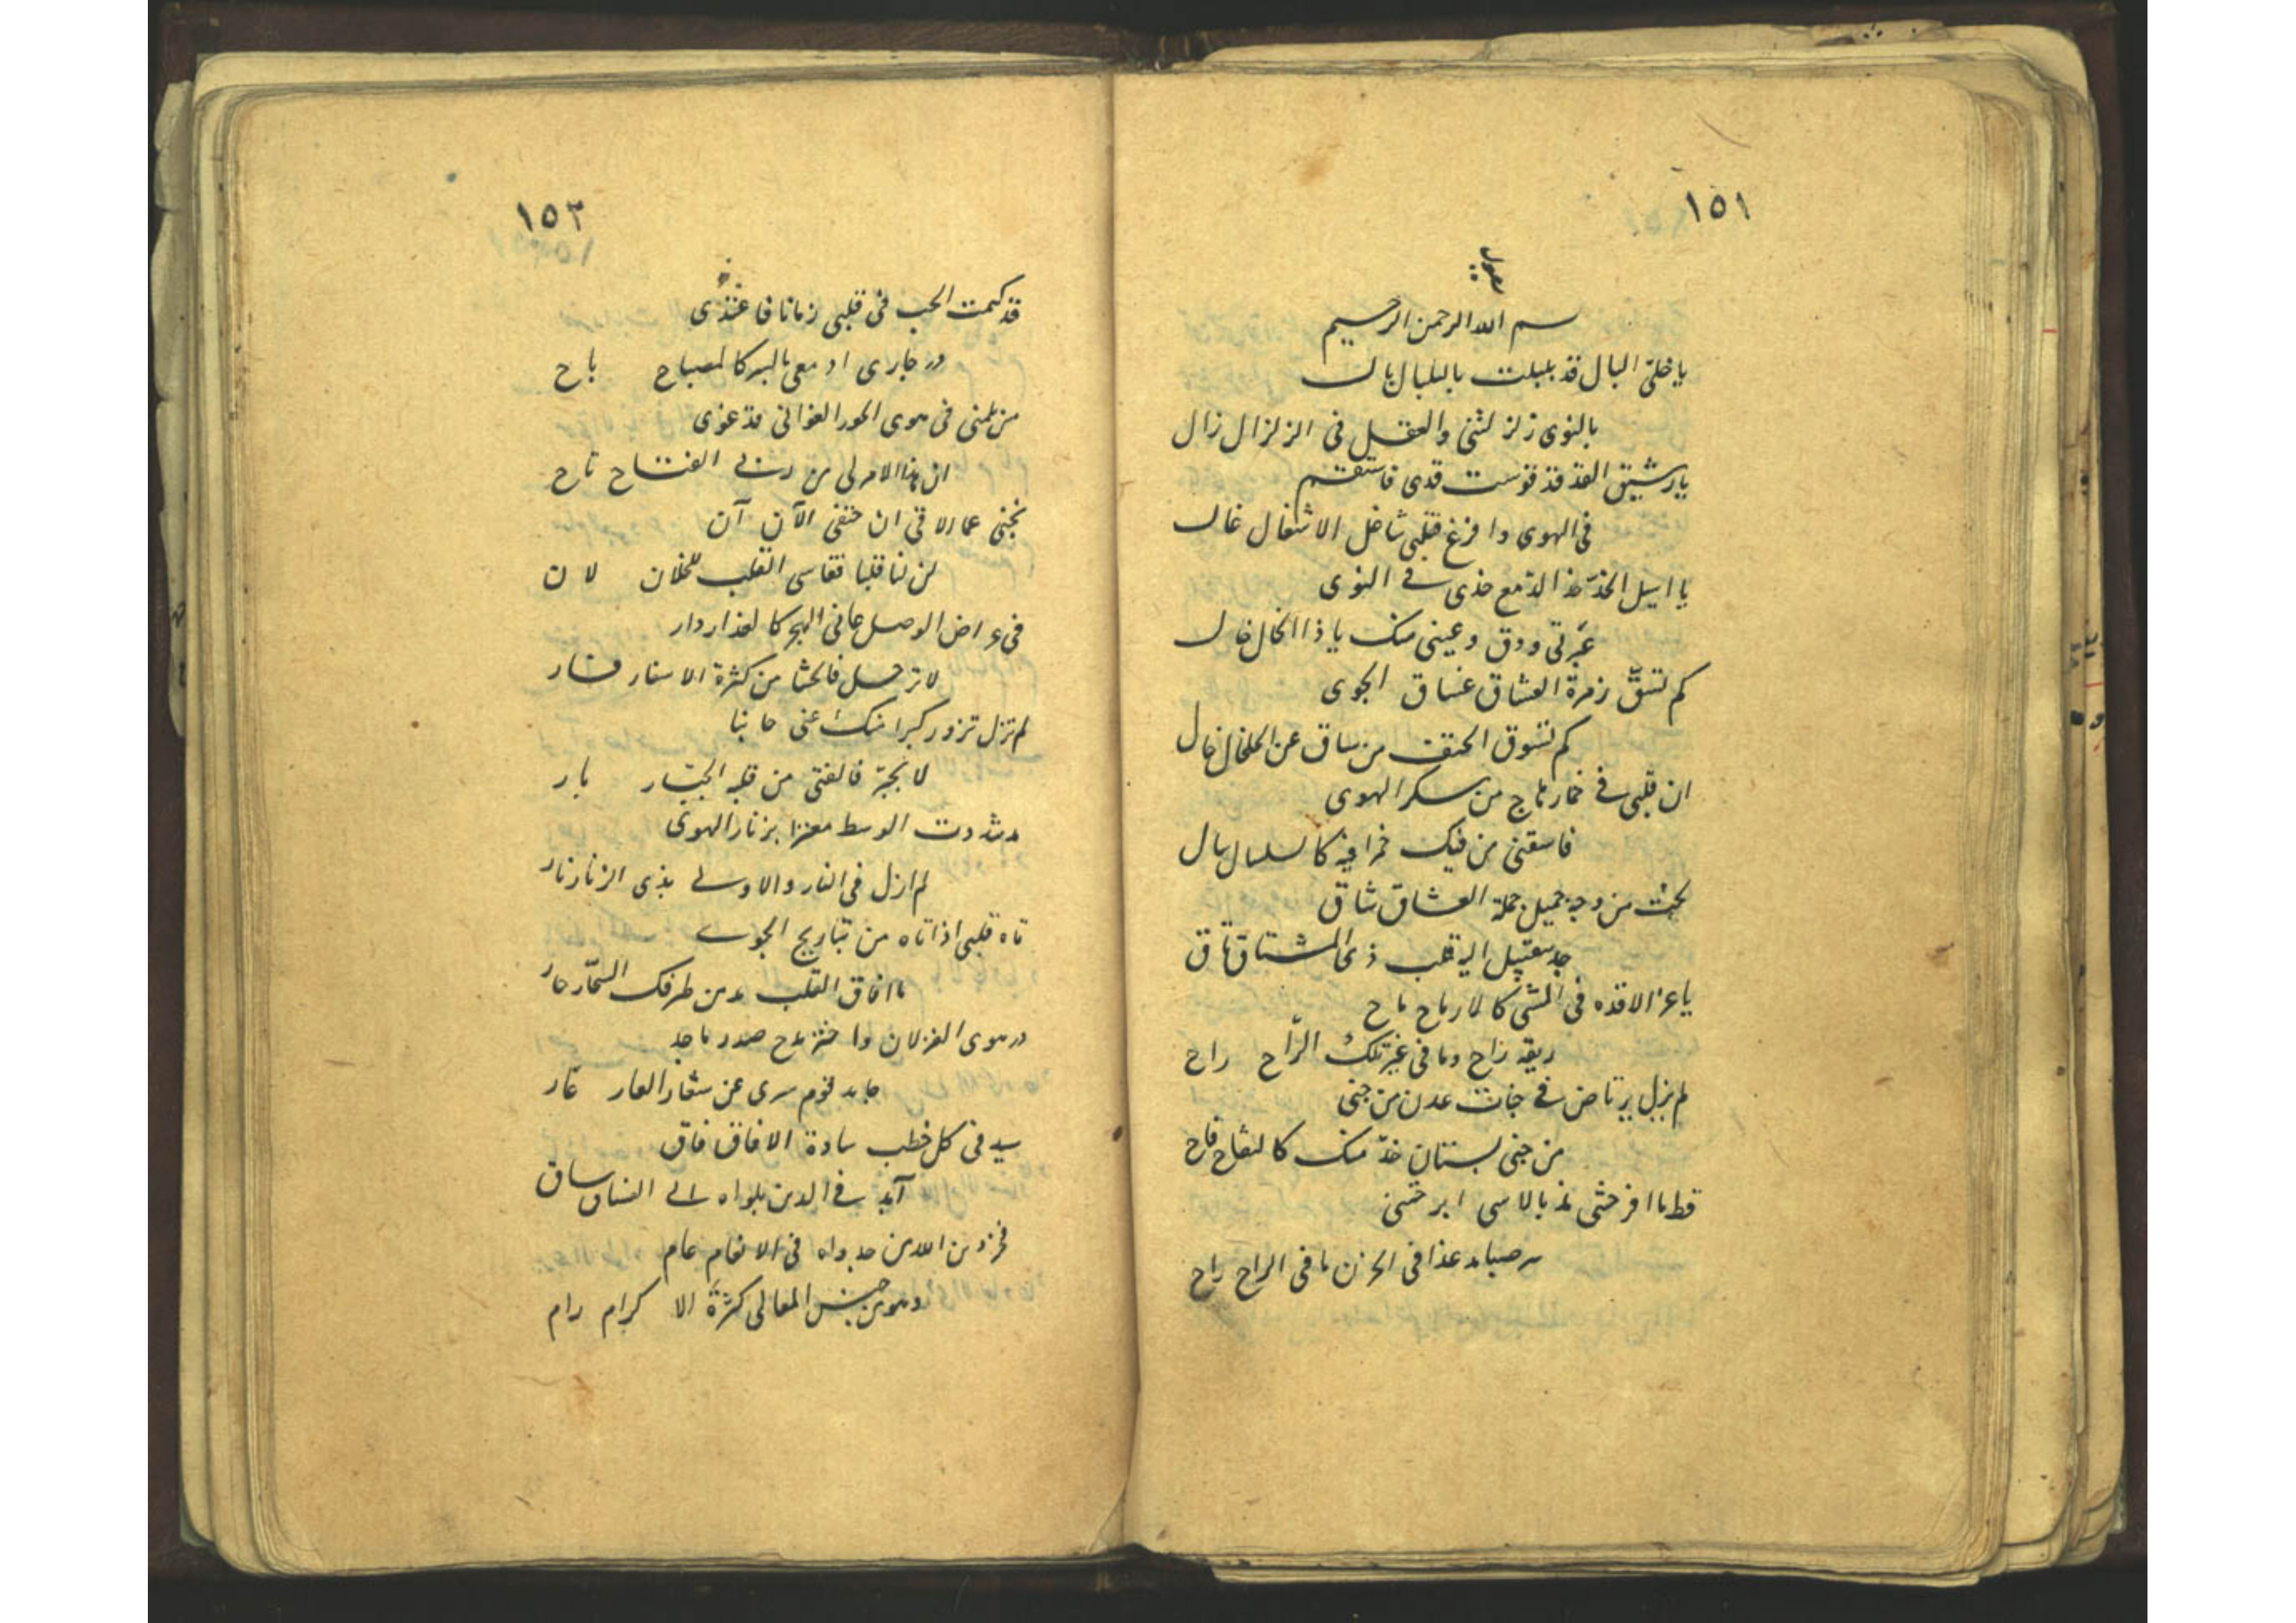 ١٥١
بسم الله الرحمن الرحيم
يا خليّ البال قد بلبلت بالبلبال بال
بالنوى زلزلتنی والعقل فی الزلزال زال
يا رشيق القد قد قوست قدی فاستقم
فی الهوى وافرغ فقلبی شاغل الاشغال غال
يا اسيل الخدّ خد الدّمع خدی فے النوى
عَبرتی ودق وعينی منک يا ذا الخال خال
كم تسقّ زمرة العشاق غساق الجوى
كم تسوق الحتف من ساق عن الخلخال خال
ان قلبی فے خمار هاج من سكر الهوى
فاسقنی من فيک خمرا فيه كالسلسال سال
لحت من وجه جميل جملة العشاق شاق
جد اليه قلب ذی المشتاق تاق
ياعز فی المشی كالارماح ماح
ريقه راح وما فی غير تلک الرّاح راح
لم يزل يرتاض فے جنات عدن من جنی
من جنی بستان خدّ منک كالتفاح فاح
قط ما افرختنی بالاسی ابرحتنی
غدا فی الحزن ما فی الراح راح
١٥٣
قد كتمت الحب فی قلبی زمانا فاغتذى
در جاری ادمعی بالسر كالمصباح باح
من يلمنی فی هوى الحور الغوانی قد غوى
ان هذا الامر لی من ربے الفتاح تاح
نجنی عما الاقی ان حتفی الآن آن
لن لنا قلبا فقاسی القلب للخلان لان
فی عراض الوصل عافی الهجر كالغدار دار
لا ترحل فالحشا من كثرة الاسفار فار
لم تزل تزور كبرا منک عنی جانبا
لا تجبر فالفتی من قلبه الجبّار بار
مذ شددت الوسط معتزا بزنار الهوى
لم ازل فی النار والاولے بذی الزنار نار
تاه قلبی اذ اتاه من تباريح الجوے
ما افاق القلب مذ من طرفک السحّار حار
ذر هوى الغزلان واختر مدح صدر ماجد
ماجد قوم سرى عن شعار العار عار
سيد فی كل خطب سادة الافاق فاق
آيد فے الدين بلواه الے الفساق ساق
فخر دين الله من جدواه فی الانعام عام
وهو من جنس المعالی كثرة الاكرام رام